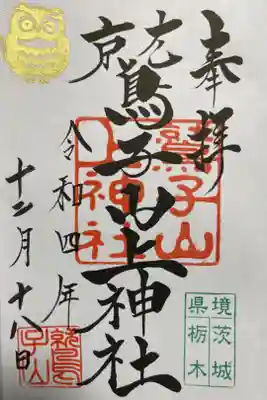 奉拝
鷲子山上神社
鷲子山
上神社
令和四年
十二月十八日
境茨城
県栃木
鷲
子山